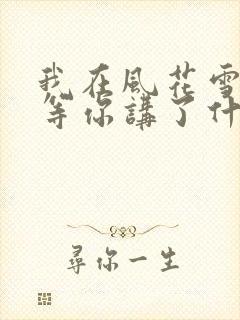 我在風花雪
等你講了什
尋你一生